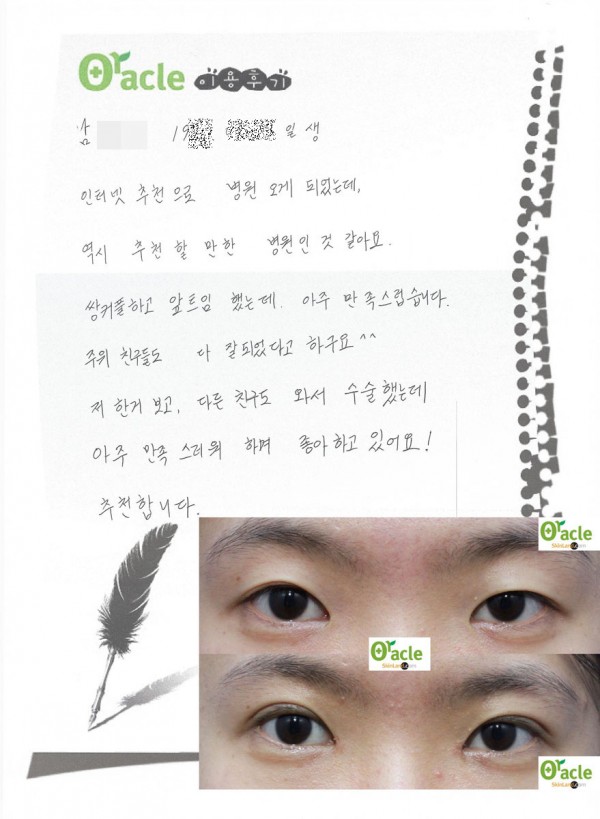 Oracle 이용후기
삼 19 일 생
인터넷 추천으로 병원 오게 되었는데,
역시 추천 할 만한 병원인 것 같아요.
쌍커풀하고 앞트임 했는데. 아주 만족스럽습니다.
주위 친구들도 다 잘되었다고 하구요^^
저 한거 보고, 다른 친구도 와서 수술했는데
아주 만족 스러워 하며 좋아하고 있어요!
추천합니다.
Oracle
Oracle
Oracle